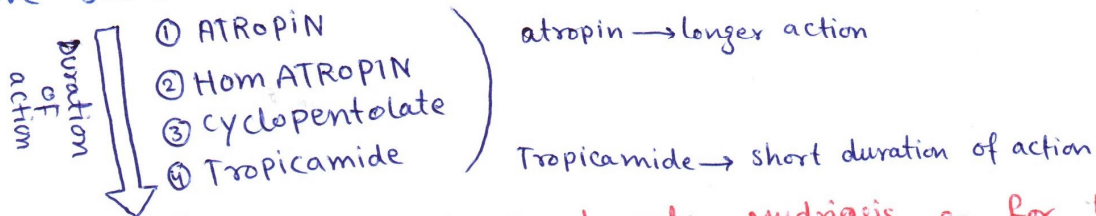 Duration of action
① ATROPIN
② HomATROPIN
③ cyclopentolate
④ Tropicamide
atropin → longer action
Tropicamide → short duration of action
mydriasis or for